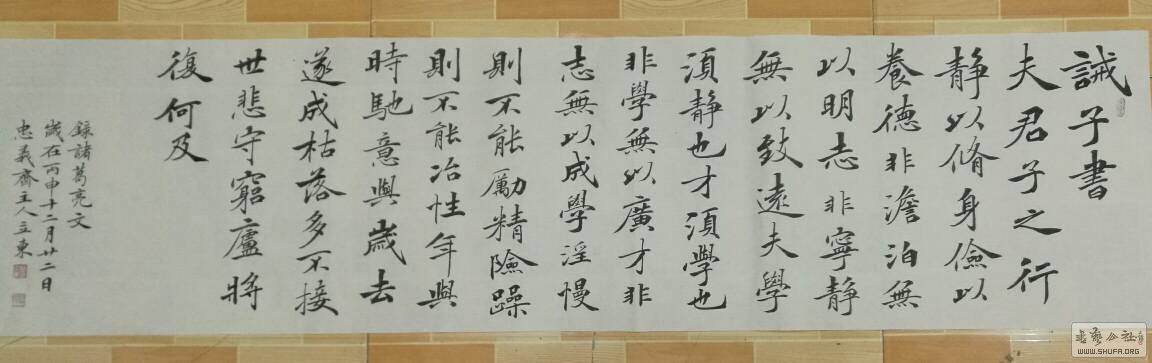 誡子書
夫君子之行
靜以脩身儉以
養德非澹泊無
以明志非寧靜
無以致遠夫學
須靜也才須學也
非學無以廣才非
志無以成學淫慢
則不能勵精險躁
則不能冶性年與
時馳意與歲去
遂成枯落多不接
世悲守窮廬將
復何及
錄諸葛亮文
歲在丙申十二月廿二日
忠義齋主人立東
WWW.SHUFA.ORG